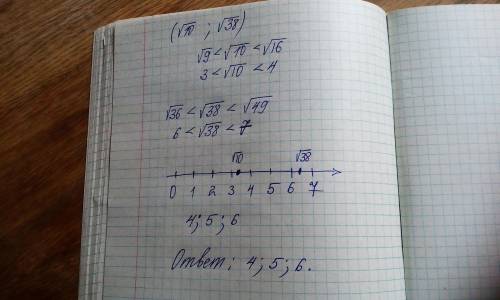 (√10 ; √38)
√9 < √10 < √16
3 < √10 < 4
√36 < √38 < √49
6 < √38 < 7
√10 √38
0 1 2 3 4 5 6 7
4; 5; 6
Ответ: 4; 5; 6.